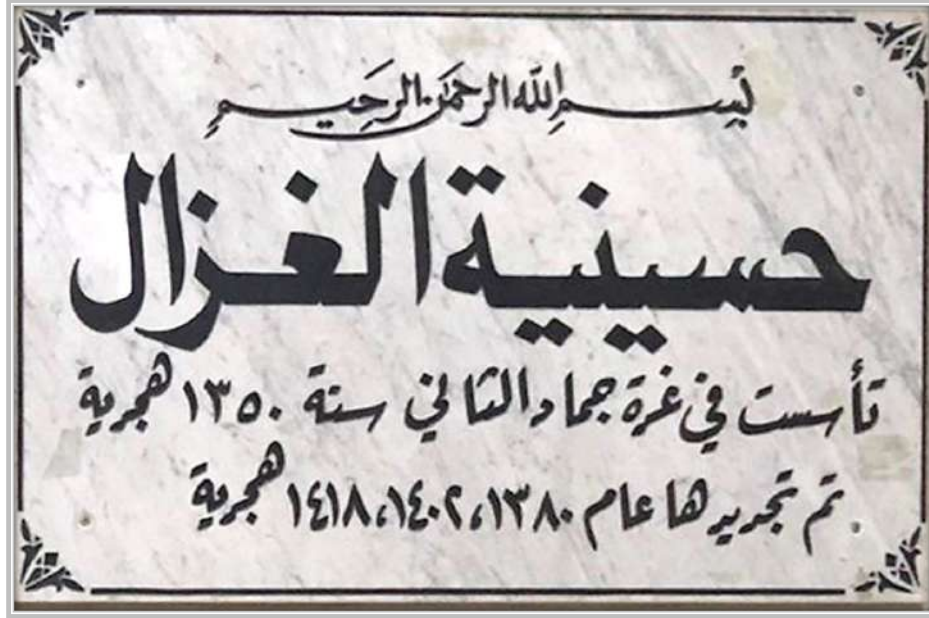 بسم الله الرحمن الرحيم
حسينية الغزال
تأسست في غرة جماد الثاني سنة ١٣٥٠ هجرية
تم تجديدها عام ١٣٨٠، ١٤٠٢، ١٤١٨ هجرية